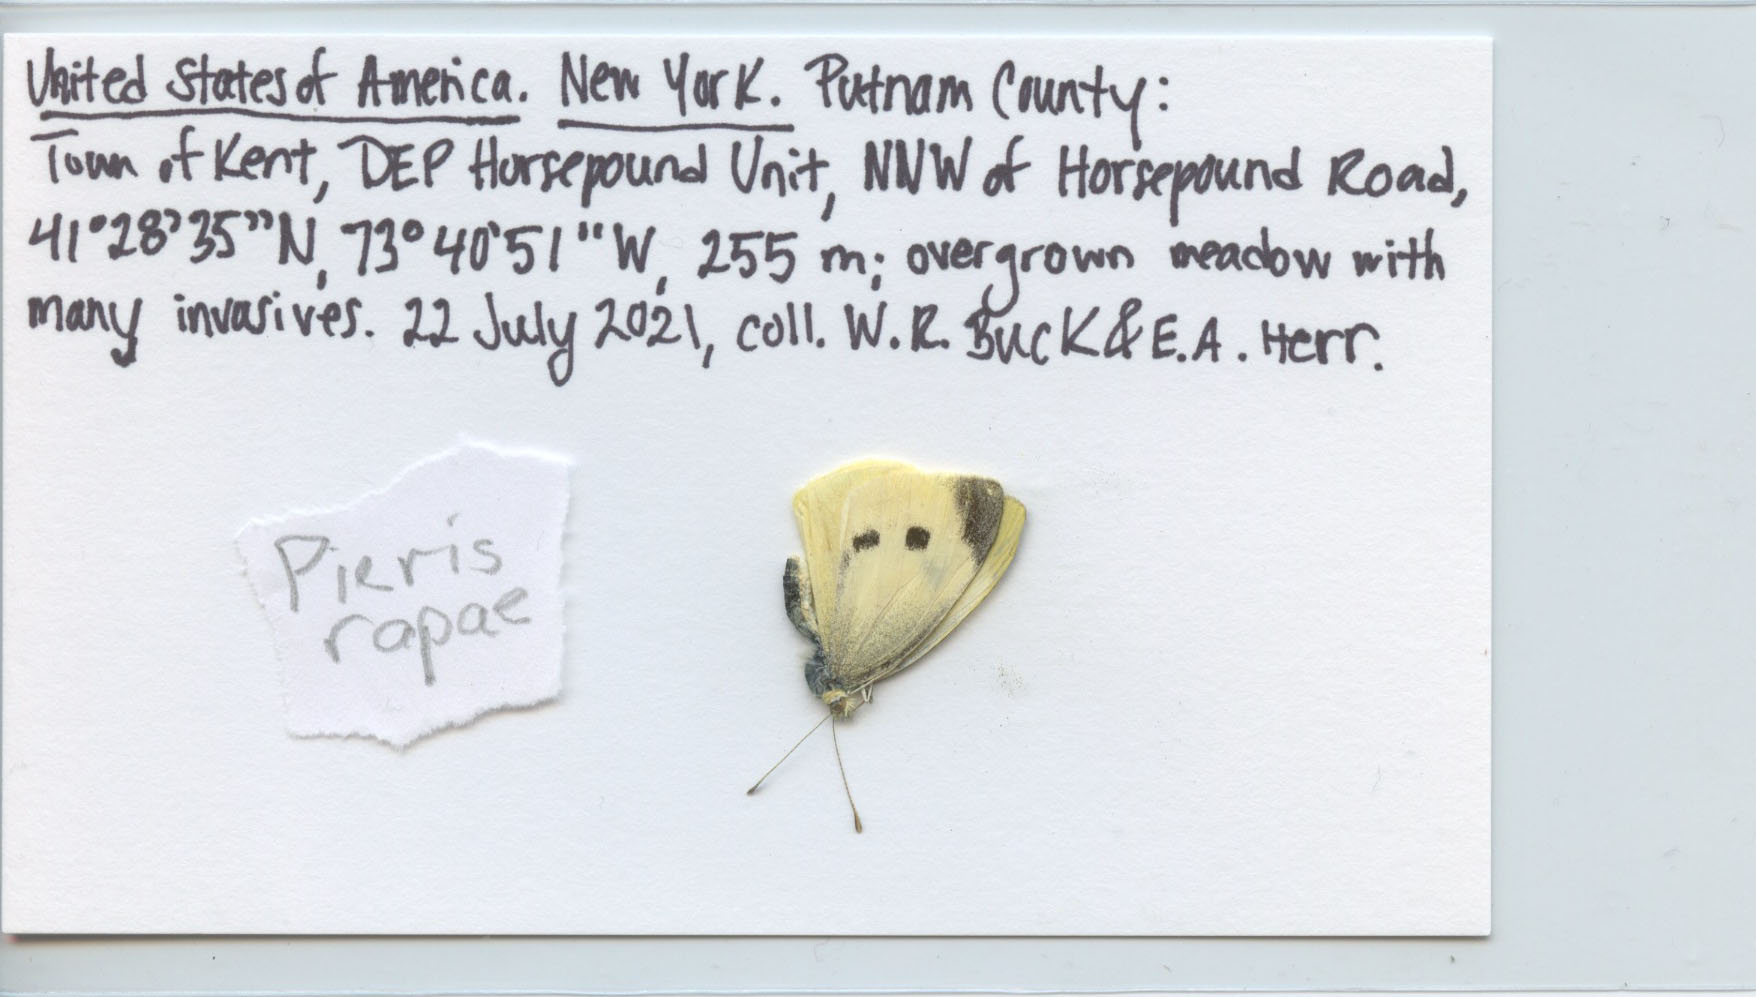 United States of America. New York. Putnam County:
Town of Kent, DEP Horsepound Unit, NNW of Horsepound Road,
41°28'35"N, 73°40'51"W, 255 m; overgrown meadow with
many invasives. 22 July 2021, coll. W.R. Buck & E.A. Herr.
Pieris
rapae